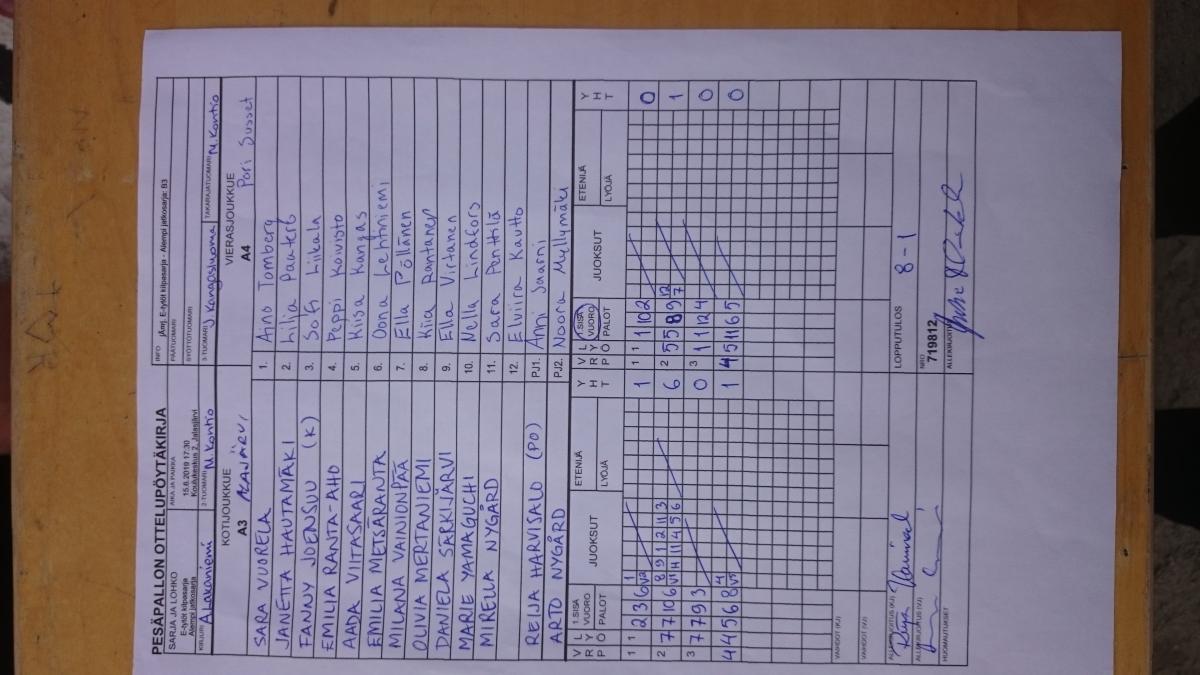 PESÄPALLON OTTELUPÖYTÄKIRJA
SARJA JA LOHKO
E-tytöt kilpasarja
Alempi jatkosarja
AIKA JA PAIKKA
15.6.2019 17:30
Koulukeskus 2, Jalasjärvi
INFO jAmj, E-tytöt kilpasarja - Alempi jatkosarja: B3
PÄÄTUOMARI
SYÖTTÖTUOMARI
KIRJURI A. Lakaniemi
2-TUOMARI N. Kontio
3-TUOMARI J Kangasluoma
TAKARAJATUOMARI N. Kontio
KOTIJOUKKUE
A3
VIERASJOUKKUE
A4 Pori Susset
SARA VUORELA 1. Aino Tomberg
JANETTA HAUTAMÄKI 2. Lilia
FANNY JOENSUU (K) 3. Sofi Liikala
EMILIA RANTA-AHO 4. Peppi Koivisto
AADA VIITASAARI 5. Kiisa Kangas
EMILIA METSÄRANTA 6. Oona Lehtiniemi
MILANA VAINIONPÄÄ 7. Ella Pöllänen
OLIVIA MERTANIEMI 8. Kiia Rantanen
DANIELA SÄRKIJÄRVI 9. Ella Virtanen
MARIE YAMAGUCHI 10. Nella Lindfors
MIRELLA NYGÅRD 11. Sara Penttilä
12. Elviira Kautto
REIJA HARVISALO (PO) PJ1. Anni Saarni
ARTO NYGÅRD PJ2. Noora Myllymäki
VRP LYÖ 1.SISÄ VUORO PALOT JUOKSUT ETENIJÄ LYÖJÄ YHT
VRP LYÖ 1.SISÄ VUORO PALOT JUOKSUT ETENIJÄ LYÖJÄ YHT
1 1 2 3 6 1
1 1 1 10 2 0
2 7 7 10 6 6
2 5 5 8 9 1
3 7 7 9 3 0
3 1 1 12 4 0
4 4 5 6 8 1
4 5 11 6 5 0
VAIHDOT (VJ)
VAIHDOT (VJ)
ALLEKIRJOITUS (KJ)
ALLEKIRJOITUS (VJ)
HUOMAUTUKSET
LOPPUTULOS 8 - 1
NRO
719812
ALLEKIRJOITUS